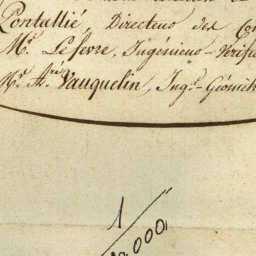 Pontallié, Directeur des Con
Mr. Lefevre, Ingénieur-Vérific
Mr. Ate. Vauquelin, Ingr.-Géomèt
1
000